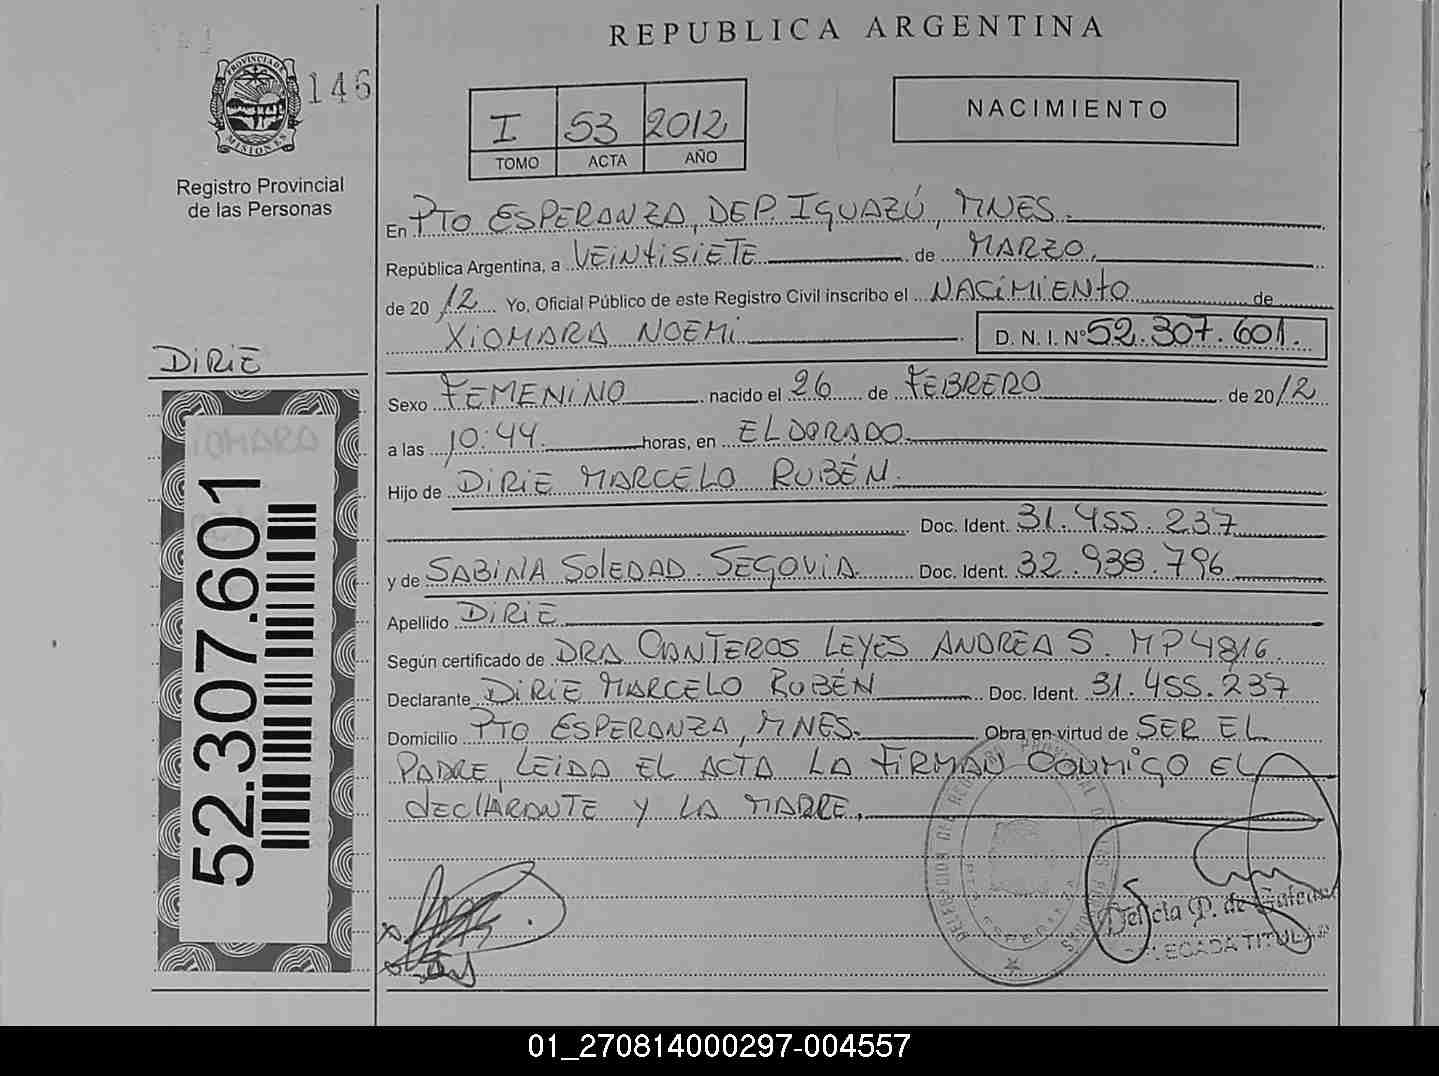 REPUBLICA ARGENTINA
PROVINCIA DE
MISIONES
146
Registro Provincial
de las Personas
I 53 2012
TOMO ACTA AÑO
NACIMIENTO
En PTO ESPERANZA, DEP. IGUAZÚ, MNES.
República Argentina, a VEINTISIETE de MARZO.
de 20 12 Yo, Oficial Público de este Registro Civil inscribo el NACIMIENTO de
XIOMARA NOEMI D. N. I. Nº 52.307.601.
DIRIE
Sexo FEMENINO nacido el 26 de FEBRERO de 20 12
a las 10:44 horas, en ELDORADO.
Hijo de DIRIE MARCELO RUBÉN.
Doc. Ident. 31.455.237
y de SABINA SOLEDAD SEGOVIA. Doc. Ident. 32.938.796
Apellido DIRIE
Según certificado de DRA CANTEROS LEYES ANDREA S. MP 4816.
Declarante DIRIE MARCELO RUBÉN Doc. Ident. 31.455.237
Domicilio PTO ESPERANZA, MNES. Obra en virtud de SER EL
PADRE, LEIDA EL ACTA LA FIRMAN CONMIGO EL
DECLARANTE Y LA MADRE.
52.307.601
DELEGACION DEL REGISTRO PROVINCIAL DE LAS PERSONAS
PTO. ESPERANZA
P. de
DELEGADA TITULAR
01_270814000297-004557